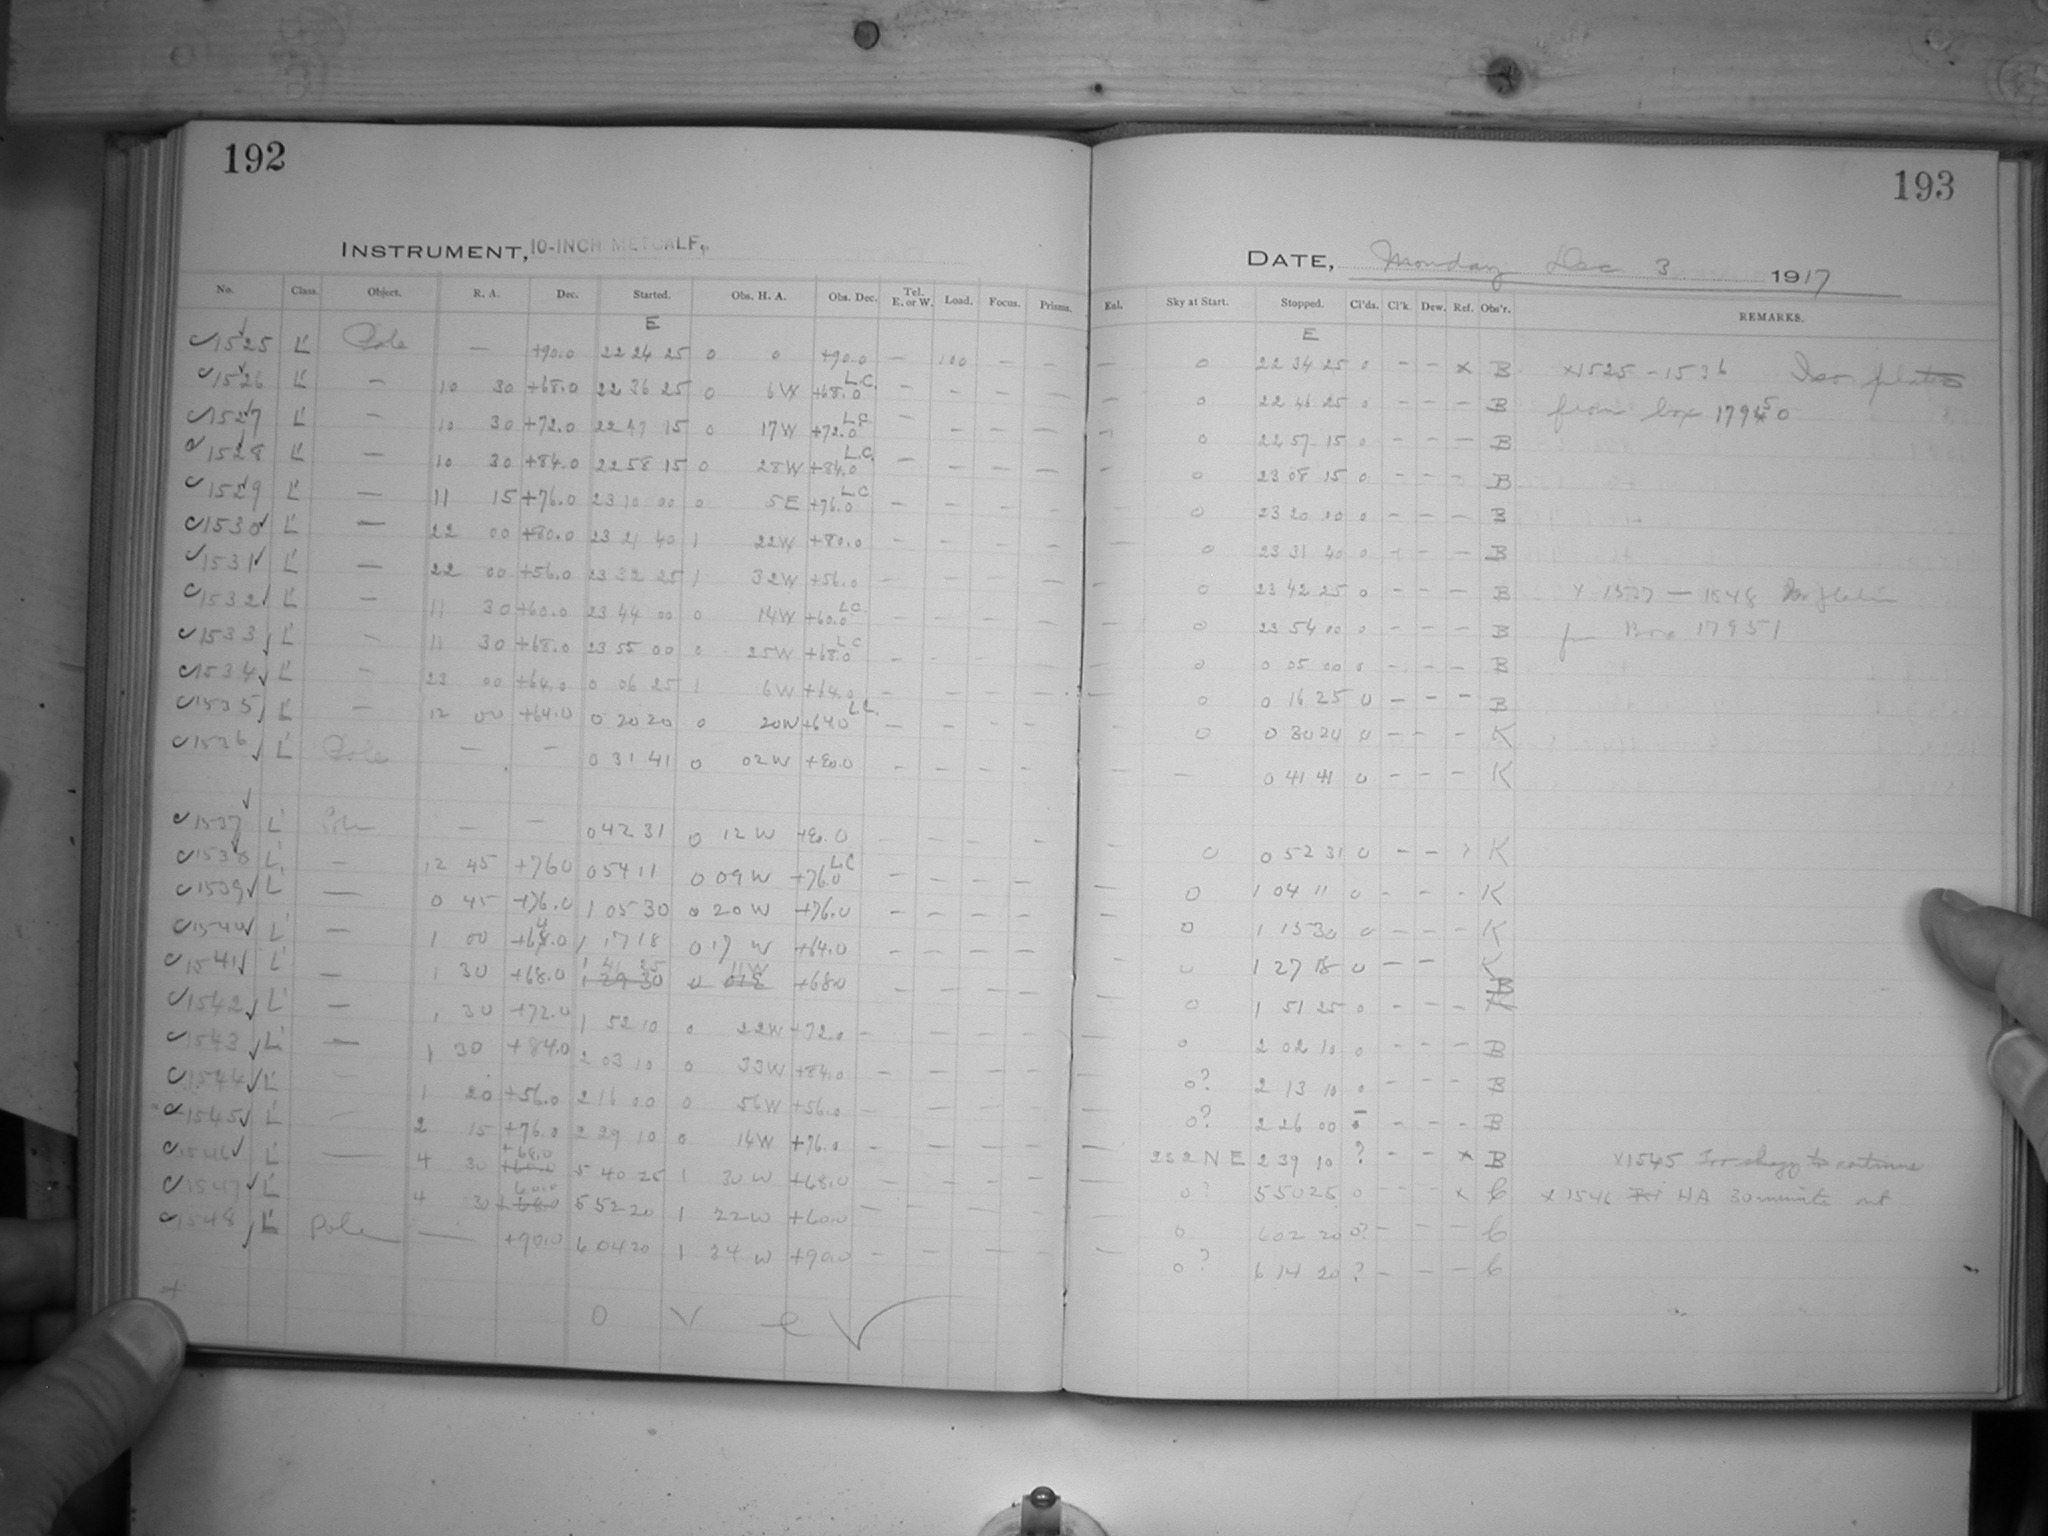 192
193
INSTRUMENT, 10-INCH METCALF,
DATE, Monday Dec 3 1917
No. Class. Object. R. A. Dec. Started. Obs. H. A. Obs. Dec. Tel. E. or W. Load. Focus. Prisms. Enl. Sky at Start. Stopped. Cl'ds. Cl'k. Dew. Ref. Obs'r. REMARKS.
E E
1525 L' Pole — +90.0 22 24 25 0 0 +90.0 — 100 — — 0 22 34 25 0 – – x B x1525 - 1536 Iso plates
1526 L' — 10 30 +68.0 22 36 25 0 6W +68.0 L.C. — — — — — 0 22 46 25 0 – – – B from box 17950
1527 L' — 10 30 +72.0 22 47 15 0 17W +72.0 L.C. — — — — — 0 22 57 15 0 – – – B
1528 L' — 10 30 +84.0 22 58 15 0 28W +84.0 L.C. — — — — — 0 23 08 15 0 – – – B
1529 L' — 11 15 +76.0 23 10 00 0 5E +76.0 L.C. — — — — — 0 23 20 00 0 – – – B
1530 L' — 22 00 +80.0 23 21 40 1 22W +80.0 — — — — — 0 23 31 40 0 – – – B
1531 L' — 22 00 +56.0 23 32 25 1 32W +56.0 — — — — — 0 23 42 25 0 – – – B x 1537 — 1548 Iso plates
1532 L' — 11 30 +60.0 23 44 00 0 14W +60.0 L.C. — — — — — 0 23 54 00 0 – – – B Box 17951
1533 L' — 11 30 +68.0 23 55 00 0 25W +68.0 L.C. — — — — — 0 0 05 00 0 – – – B
1534 L' — 23 00 +64.0 0 06 25 1 6W +64.0 — — — — — 0 0 16 25 0 – – – B
1535 L' — 12 00 +64.0 0 20 20 0 20W +64.0 L.C. — — — — — 0 0 30 20 0 – – – K
1536 L' Pole — — 0 31 41 0 02W +90.0 — — — — — — 0 41 41 0 – – – K
1537 L' Pole — — 0 42 31 0 12 W +90.0 — — — — — 0 0 52 31 0 – – K
1538 L' — 12 45 +76.0 0 54 11 0 09 W +76.0 L.C. — — — — — 0 1 04 11 0 – – – K
1539 L' — 0 45 +76.0 1 05 30 0 20 W +76.0 — — — — — 0 1 15 30 0 – – – K
1540 L' — 1 00 +64.0 1 17 18 0 17 W +64.0 — — — — — 0 1 27 18 0 – – K
1541 L' — 1 30 +68.0 1 41 25 0 11W +68.0 — — — — — 0 1 51 25 0 – – – B
1542 L' — 1 30 +72.0 1 52 10 0 22W +72.0 — — — — — 0 2 02 10 0 – – – B
1543 L' — 1 30 +84.0 2 03 10 0 33W +84.0 — — — — — 0? 2 13 10 0 – – – B
1544 L' — 1 20 +56.0 2 16 00 0 56W +56.0 — — — — — 0? 2 26 00 – – – B
1545 L' — 2 15 +76.0 2 29 10 0 14W +76.0 — — — — — 232 N E 2 39 10 ? – – x B x1545 to continue
1546 L' — 4 30 +68.0 5 40 25 1 30 W +68.0 — — — — — 0? 5 50 25 0 – – x C x 1546 HA 30 minute out
1547 L' 4 30 60.0 5 52 20 1 22W +60.0 — — — — — 0 6 02 20 0? – – – C
1548 L' Pole — +90.0 6 04 20 1 34 W +90.0 — — — — — 0? 6 14 20 ? – – – C